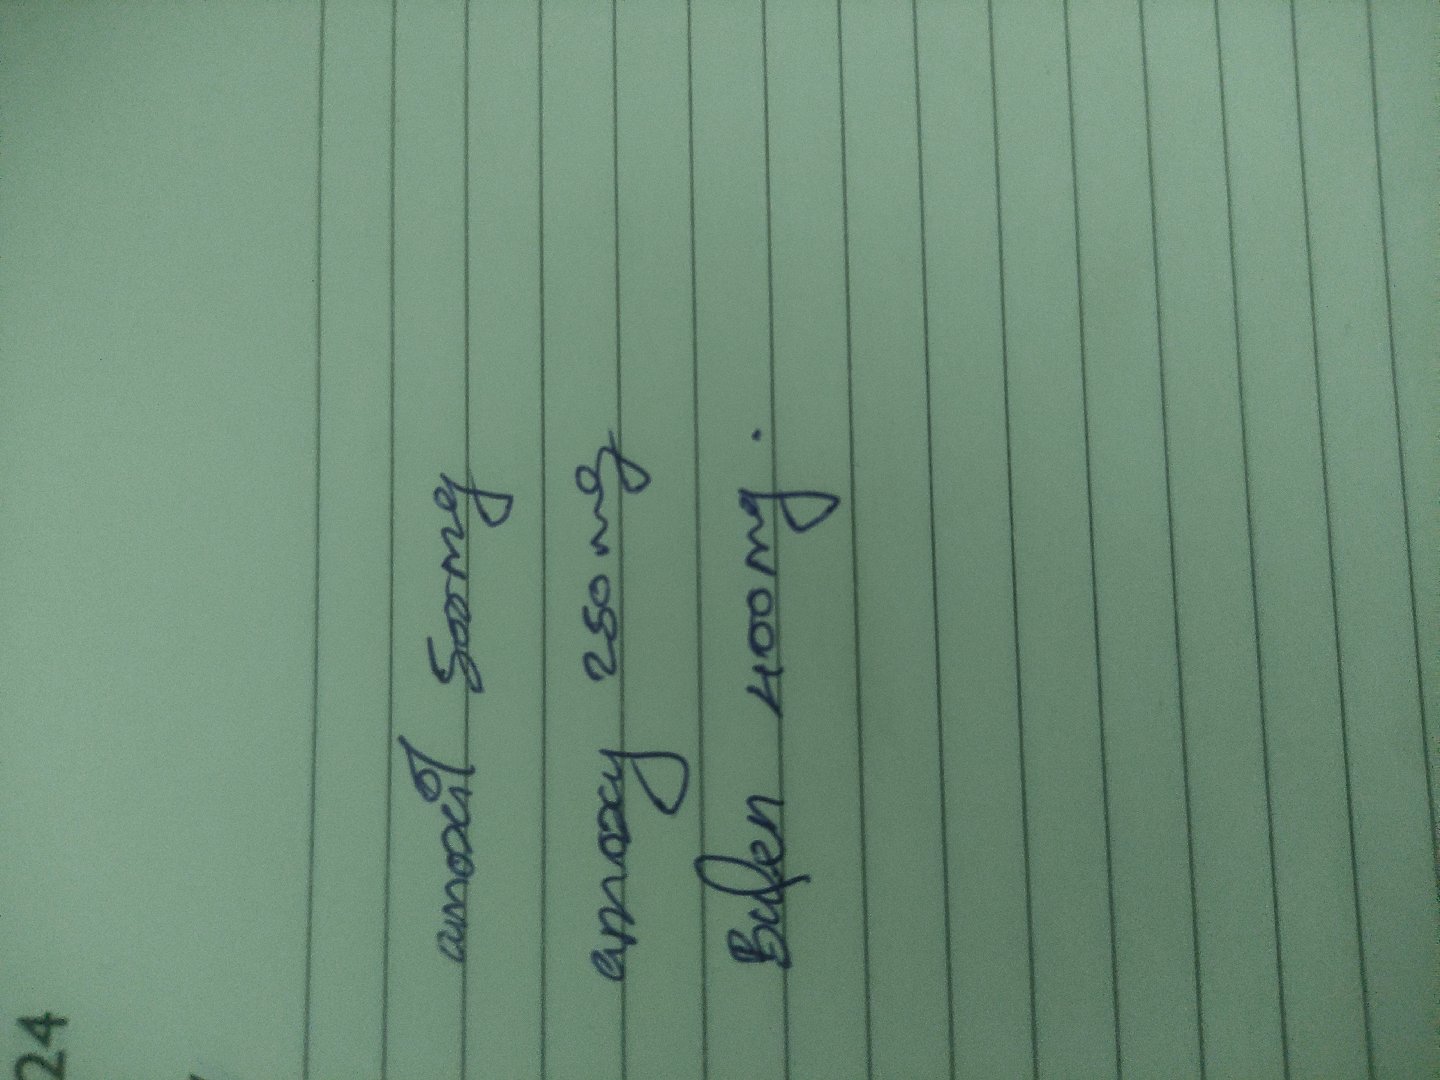 24
amoxil 500mg
amoxy 250mg
Bufen 400mg.